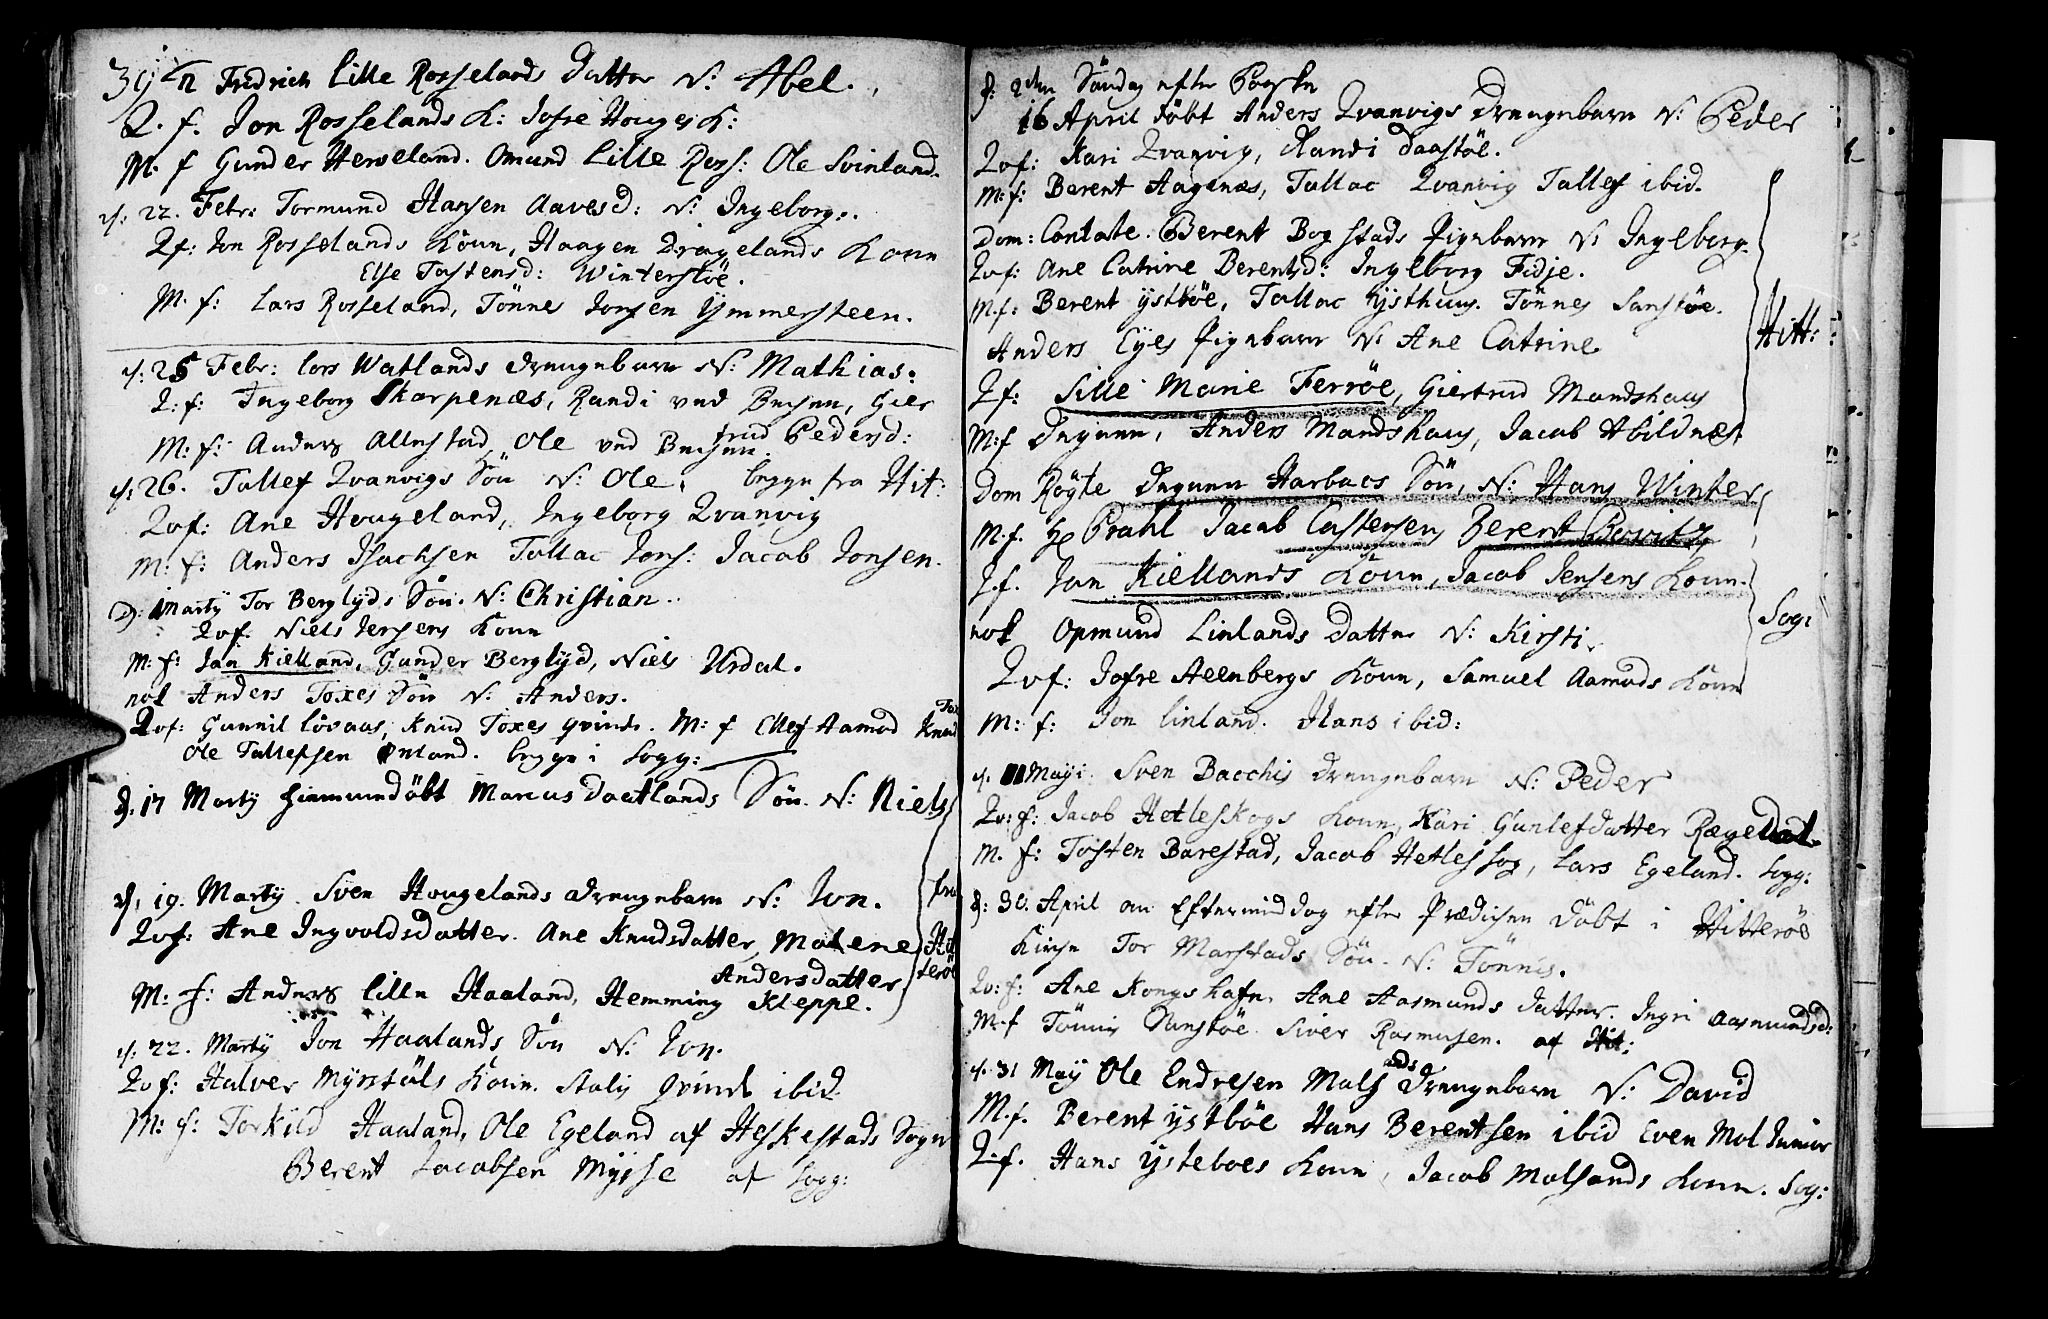 Fredrich Lille Rosselands datter N: Abel.
Q. f. Jon Rosselands K: Jofre Houges K:
M. f Gunder Herveland. Omund Lille Ross: Ole Svinland.
d: 22. Febr: Tormund Hansen Aavesd: N: Ingeborg.
Qf: Jon Rosselands Koun, Haagen Dragelands Koun
Else Tostensd: Winterstøe.
M. f: Lars Rosseland, Tönnes Jonsen Ymmersteen.
d: 25 Febr: Lars Watlands drengebarn N: Mathias:
Q: f: Ingeborg Skarpenæs, Randi ved Bechen, Gier
trud Pedersd:
M: f: Anders Allestad, Ole ved Bechen.
d: 26. Tallef Qvanvigs Sön N: Ole. begge fra Hit:
Qvf: Ane Hougeland, Ingeborg Qvanvig
M: f: Anders Isachsen Tallac Jons: Jacob Jonsen.
D. 1 Marty Tor Berglyds Sön. N: Christian.
Qvf. Niels Jersens Koun
M: f: Jan Kielland, Gunder Berglyd, Niels Urdal.
nok Anders Toxes Sön N: Anders.
Qvf: Gunnil Lövaas, Knud Toxes qvinde. M: f Ellef Aamod Knud Tox
Ole Tallefsen Ønland. begge i Sogg:
d. 17 Marty hiemmedöbt Marcus Daatlands Sön. N: Niels
d. 19. Marty. Sven Hougelands drengebarn N: Jon.
fra
Qvf: Ane Ingvoldsdatter. Ane Knudsdatter, Malene
Andersdatter
Hit
terøe
M: f: Anders Lille Haaland, Hemming Kleppe.
d: 22. Marty Jon Haalands Sön N: Jon.
Qvf: Halver Myrstöls Koun. Staly qvinde ibid.
M: f: Torkild Haaland, Ole Egeland af Heskestads Sogn
Berent Jacobsen Mysse af Sogg:
d: 2den Söndag efter Paaske
16 April döbt Anders Qvanvigs drengebarn N: Peder
Qvf: Kari Qvanvig, Randi Daastöl.
M: f: Berent Hagenæs, Tallac Qvanvig Tallef ibid.
Dom: Cantate: Berent Bogstads Pigebarn N: Ingeborg.
Qvf: Ane Catrine Berentsd: Ingeborg Fidje.
M. f: Berent Ystböe, Tallac Nysthuus. Tönnes Sanstøe.
Anders Eyes Pigebarn N: Ane Catrine
Hitt:
Qf: Sille Marie Ferröe, Giertrud Mandshaus
M: f Degnen, Anders Mandshaus, Jacob Abildnæs
Dom Rogte Degnen Harbaes Sön, N: Hans Winter
M. f. Hr Prahl Jacob Castensen Berent
Qf. Jan Kiellands Koun, Jacob Jensens Koun.
nok Opmund Linlands Datter N: Kirsti.
Sog:
Qvf: Jofre Steenbergs Koun, Samuel Aamods Koun
M: f: Jon Linland. Hans ibid:
d. Mayi. Sven Bacchis drengebarn N: Peder
Qv: f: Jacob Hetleskogs Koun, Kari Gunlefdatter Rægedal.
M. f: Tosten Barestad, Jacob Hetleskog, Lars Egeland. Sogg:
d: 30. April om Eftermiddag efter Prædichen döbt i Hitteröe
Kirche Tor Marstads Sön. N: Tönnis.
Qv: f: Ane Kongshafn. Ane Aasmunds datter. Ingri Aasmundsd:
M. f Tönnis Sanstöe. Siver Rasmusen. af Hit:
d. 31 May Ole Endresen Molsands drengebarn N: David
M. f. Berent Ystböe Hans Berentsen ibid Even Mol Junior
Q. f. Hans Ysteboes Koun, Jacob Molsands Koun. Sog: